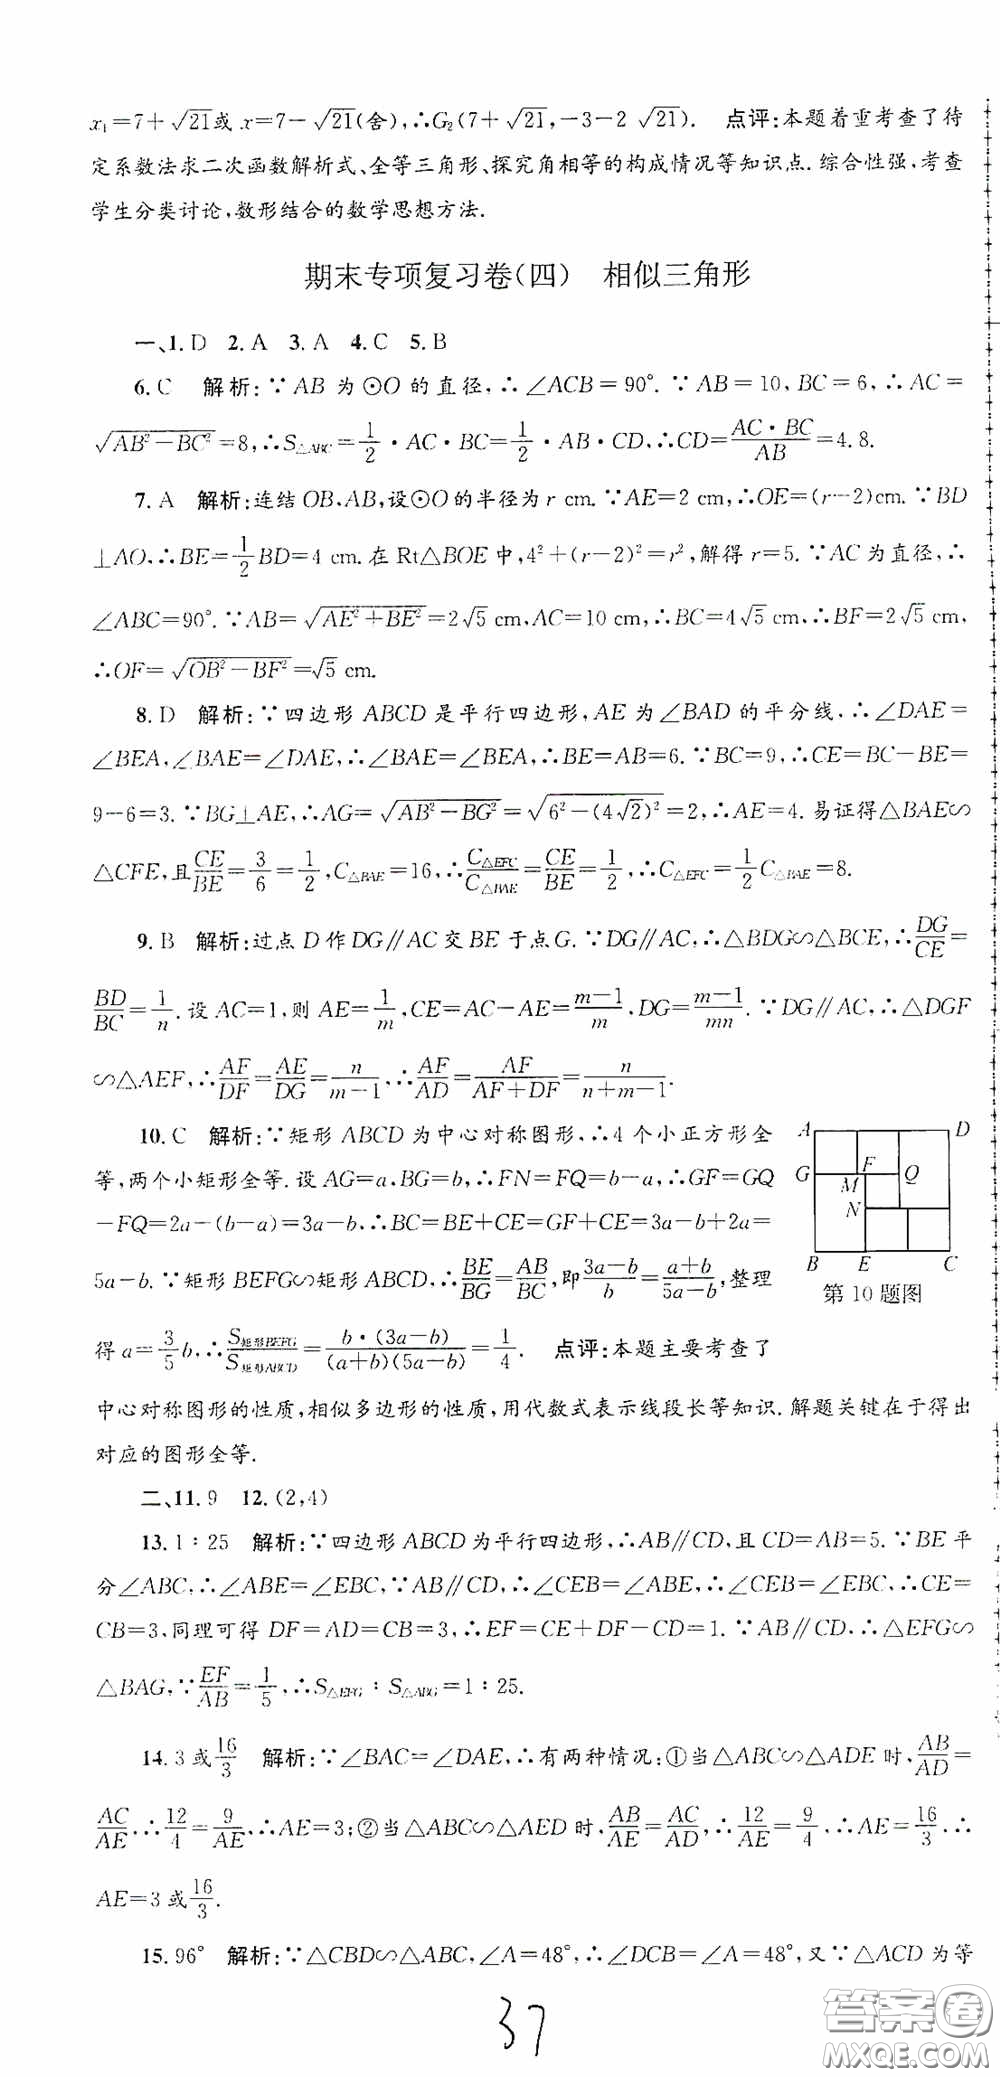 x₁=7+√21或 x=7-√21(舍),∴G₂(7+√21,-3-2√21). 点评:本题着重考查了待
定系数法求二次函数解析式、全等三角形、探究角相等的构成情况等知识点.综合性强,考查
学生分类讨论,数形结合的数学思想方法.
期末专项复习卷(四) 相似三角形
一、1. D 2. A 3. A 4. C 5. B
6. C 解析:∵AB 为⊙O 的直径,∴∠ACB=90°. ∵AB=10,BC=6,∴AC=
√(AB²-BC²)=8,∴S△ABC=1/2·AC·BC=1/2·AB·CD,∴CD=(AC·BC)/AB=4.8.
7. A 解析:连结OB、AB,设⊙O的半径为r cm. ∵AE=2 cm,∴OE=(r-2)cm. ∵BD
⊥AO,∴BE=1/2BD=4 cm. 在 Rt△BOE 中,4²+(r-2)²=r²,解得 r=5. ∵AC为直径,∴
∠ABC=90°. ∵AB=√(AE²+BE²)=2√5 cm,AC=10 cm,∴BC=4√5 cm,∴BF=2√5 cm,
∴OF=√(OB²-BF²)=√5 cm.
8. D 解析:∵四边形 ABCD 是平行四边形,AE 为∠BAD 的平分线,∴∠DAE=
∠BEA,∠BAE=∠DAE,∴∠BAE=∠BEA,∴BE=AB=6. ∵BC=9,∴CE=BC-BE=
9-6=3. ∵BG⊥AE,∴AG=√(AB²-BG²)=√(6²-(4√2)²)=2,∴AE=4. 易证得△BAE∽
△CFE,且CE/BE=3/6=1/2,C△BAE=16,∴C△EFC/C△BAE=CE/BE=1/2,∴C△EFC=1/2C△BAE=8.
9. B 解析:过点 D 作DG∥AC 交 BE 于点G. ∵DG∥AC,∴△BDG∽△BCE,∴DG/CE=
BD/BC=1/n. 设 AC=1,则 AE=1/m,CE=AC-AE=(m-1)/m,DG=(m-1)/mn. ∵DG∥AC,∴△DGF
∽△AEF,∴AF/DF=AE/DG=n/(m-1),∴AF/AD=AF/(AF+DF)=n/(n+m-1).
10. C 解析:∵矩形 ABCD 为中心对称图形,∴4 个小正方形全
等,两个小矩形全等. 设 AG=a,BG=b,∴FN=FQ=b-a,∴GF=GQ
-FQ=2a-(b-a)=3a-b,∴BC=BE+CE=GF+CE=3a-b+2a=
5a-b. ∵矩形 BEFG∽矩形 ABCD,∴BE/BG=AB/BC,即(3a-b)/b=(a+b)/(5a-b),整理
得 a=3/5b,∴S矩形BEFG/S矩形ABCD=b·(3a-b)/(a+b)(5a-b)=1/4. 点评:本题主要考查了
A D
G F Q
M
N
B E C
第 10 题图
中心对称图形的性质,相似多边形的性质,用代数式表示线段长等知识. 解题关键在于得出
对应的图形全等.
二、11. 9 12. (2,4)
13. 1∶25 解析:∵四边形 ABCD 为平行四边形,∴AB∥CD,且 CD=AB=5. ∵BE 平
分∠ABC,∴∠ABE=∠EBC,∵AB∥CD,∴∠CEB=∠ABE,∴∠CEB=∠EBC,∴CE=
CB=3,同理可得 DF=AD=CB=3,∴EF=CE+DF-CD=1. ∵AB∥CD,∴△EFG∽
△BAG,∵EF/AB=1/5,∴S△EFG∶S△ABG=1∶25.
14. 3 或16/3 解析:∵∠BAC=∠DAE,∴有两种情况:①当△ABC∽△ADE 时,AB/AD=
AC/AE,∴12/4=9/AE,∴AE=3;②当△ABC∽△AED 时,AB/AE=AC/AD,∴12/AE=9/4,∴AE=16/3,∴
AE=3 或16/3.
15. 96° 解析:∵△CBD∽△ABC,∠A=48°,∴∠DCB=∠A=48°,又∵△ACD 为等
37
答案圈
MXQE.COM